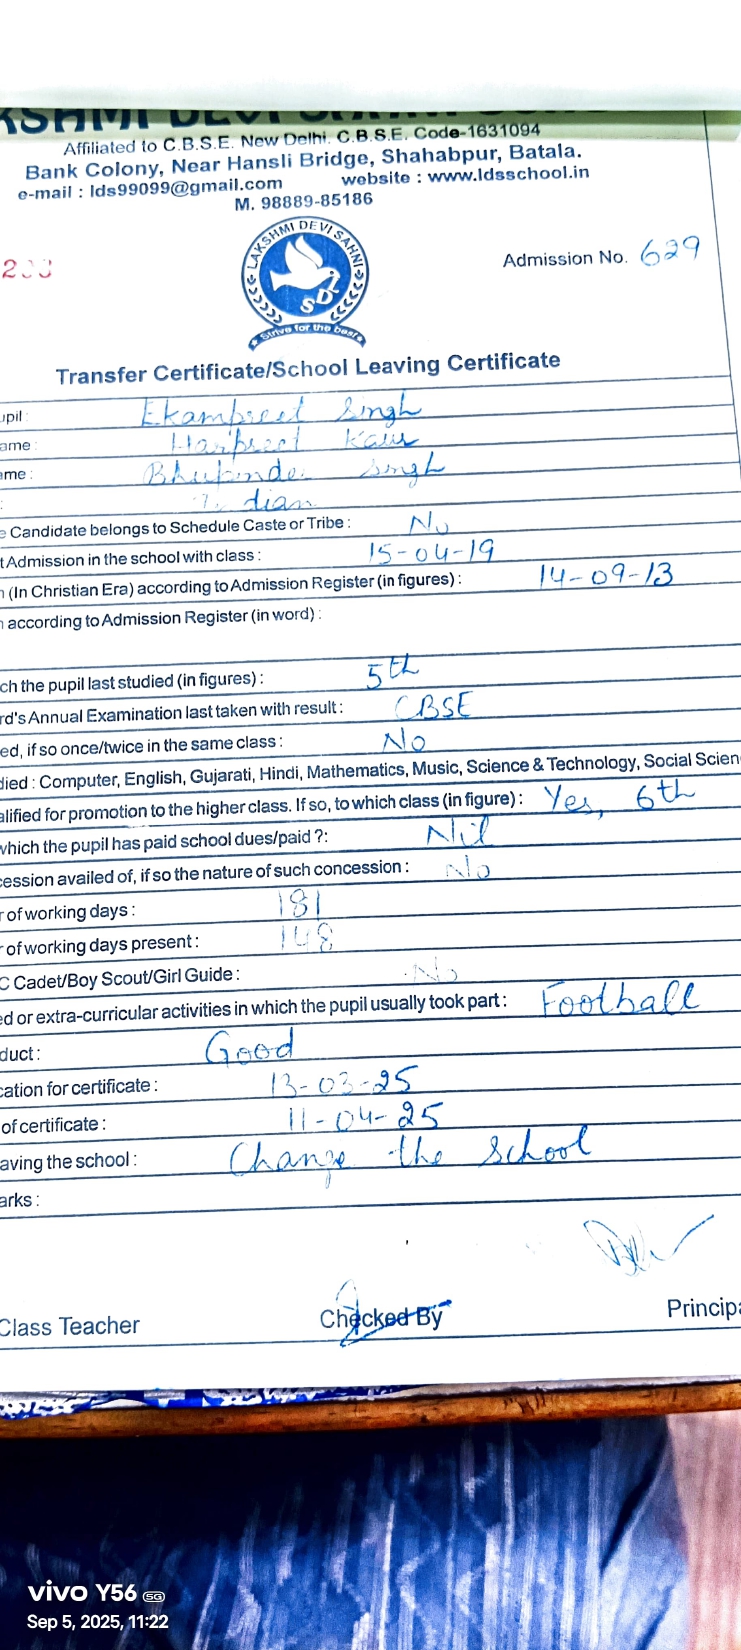 Affiliated to C.B.S.E. New Delhi. C.B.S.E. Code-1631094
Bank Colony, Near Hansli Bridge, Shahabpur, Batala.
e-mail : lds99099@gmail.com website : www.ldsschool.in
M. 98889-85186
LAKSHMI DEVI SAHNI
SDL
Strive for the best
Admission No. 629
Transfer Certificate/School Leaving Certificate
upil : Ekampreet Singh
ame : Harpreet Kaur
ame : Bhupinder Singh
: Indian
e Candidate belongs to Schedule Caste or Tribe : No
t Admission in the school with class : 15-04-19
n (In Christian Era) according to Admission Register (in figures) : 14-09-13
n according to Admission Register (in word) :
ch the pupil last studied (in figures) : 5th
rd's Annual Examination last taken with result : CBSE
ed, if so once/twice in the same class : No
died : Computer, English, Gujarati, Hindi, Mathematics, Music, Science & Technology, Social Scien
alified for promotion to the higher class. If so, to which class (in figure) : Yes, 6th
which the pupil has paid school dues/paid ?: Nil
cession availed of, if so the nature of such concession : No
r of working days : 181
r of working days present : 148
C Cadet/Boy Scout/Girl Guide : No
ed or extra-curricular activities in which the pupil usually took part : Football
duct : Good
cation for certificate : 13-03-25
of certificate : 11-04-25
aving the school : Change the school
arks :
Class Teacher Checked By Principa
vivo Y56 5G
Sep 5, 2025, 11:22